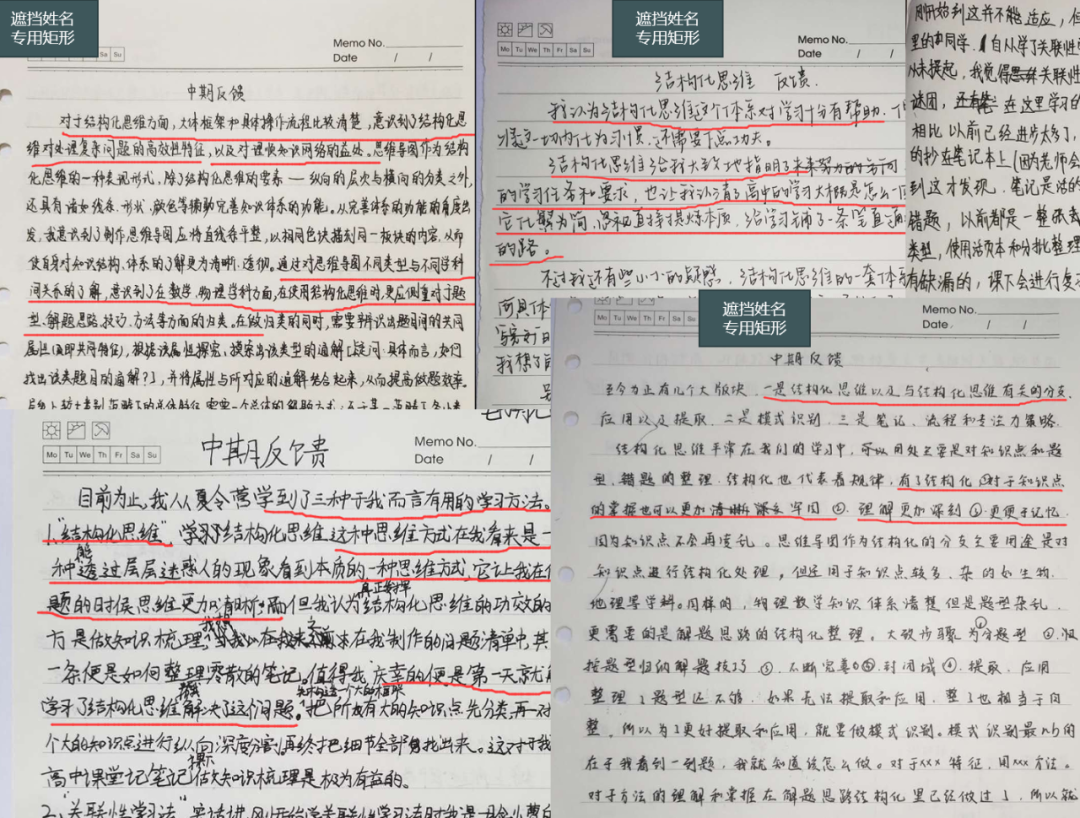 遮挡姓名
专用矩形
Sa Su
Memo No.
Date / /
中期反馈
对于结构化思维方面，大体框架和具体操作流程比较清楚，意识到了结构化思
维对处理复杂问题的高效性特征，以及对理快知识网络的益处。思维导图作为结构
化思维的一种表现形式，除了结构化思维的要素——纵向的层次与横向的分类之外，
还具有诸如线条、形状、颜色等辅助完善知识体系的功能。从完善体系的功能的角度出
发，我意识到了制作思维导图应将直线条平整，以相同色块描到同一板块的内容，从而
使自身对知识结构、体系的了解更为清晰、透彻。通过对思维导图不同类型与不同学科
间关系的了解，意识到了在数学、物理学科方面，在使用结构化思维时，更应侧重对于题
型、解题思路、技巧、方法等方面的归类。在做归类的同时，需要辨识出题目间的共同
属性（即共同特征），根据该属性探究、摸索出该类型的通解［疑问：具体而言，如何
找出该类题目的通解？］，并将属性与所对应的通解结合起来，从而提高做题效率。
遮挡姓名
专用矩形
Mo Tu We Th Fr Sa Su
Memo No.
Date / /
结构化思维 反馈.
我认为结构化思维这个体系对学习十分有帮助.
要一切内化为习惯，还需要下点功夫。
结构化思维给我大致地指明了未来努力的方向
的学习任务和要求，也让我认清了高中的学习大概是怎么
它化繁为简，思和直接抓其本质，给学习铺了一条宽直通
的路。
不过我还有些小小的疑惑，结构化思维的一套体系
刚开始到这并不能适应，
里的同学。自从学了关联性
从未提起，我觉得关联性
谜团，在这里学习的
相比以前已经进步太多了，
的抄在笔记本上（因老师会
到这才发现，笔记是活的
错题，以前都是一整
类型，使用活页本和分批整理
有缺漏的，课下会进行
Mo Tu We Th Fr Sa Su
Memo No.
Date / /
中期反馈
目前为止，我从夏令营学到了三种于我而言有用的学习方法。
1、“结构化思维” 学习了结构化思维，这种思维方式在我看来是一
种能透过层层迷惑人的现象看到本质的一种思维方式，它让我在
题的时候思维更加清晰，而但我认为结构化思维的功效的真正
方是做知识梳理，在我制作的问题清单中，其
一条便是如何整理零散的笔记。值得我庆幸的便是第一天就
学习了结构化思维解决了这个问题。把所有大的知识点先分类，再对
个大的知识点进行纵向深度，再终把细节全部包括出来。这对于我
高中课堂记笔记做知识梳理是极为有益的。
2、关联性学习法
遮挡姓名
专用矩形
Mo Tu We Th Fr Sa
Memo No.
Date / /
中期反馈
至今为止有几个大版块，一是结构化思维以及与结构化思维有关的分支
应用以及提取，二是模式识别，三是笔记、流程和专注力策略.
结构化思维平常在我们的学习中，可以用处主要是对知识点和题
型，错题的整理，结构化也代表着规律，有了结构化，对于知识点
的掌握也可以更加清晰 牢固 ②，理解更加深刻 ③更便于记忆，
因为知识点不会再凌乱。思维导图作为结构化的分支主要用途是对
知识点进行结构化处理，但运用于知识较多、杂的如生物.
地理等学科。同样的，物理数学知识体系清楚但是题型杂乱，
更需要的是解题思路的结构化整理，大致步骤为①分题型 ②根
据题型归纳解题技巧 ③，不断完善 封闭域④，提取，应用
整理了题型还不够，如果无法提取和应用，整了也相当于白
整。所以为了更好提取和应用，就要做模式识别。模式识别最nb的
在于我看到一到题，我就知道该怎么做。对于xxx 特征，用xxx方法。
对于方法的理解和掌握在解题思路结构化里已经做过了，所以就